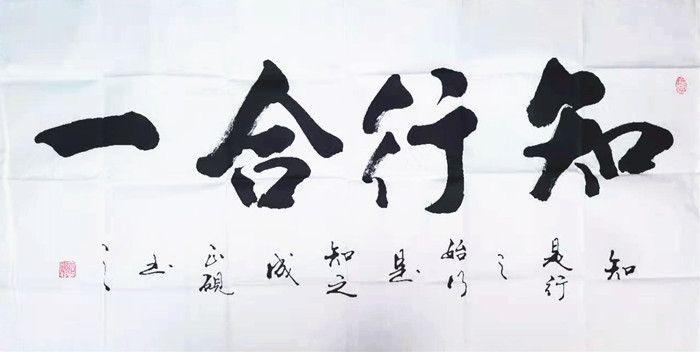 知行合一
知是行之始行是知之成正砚书之